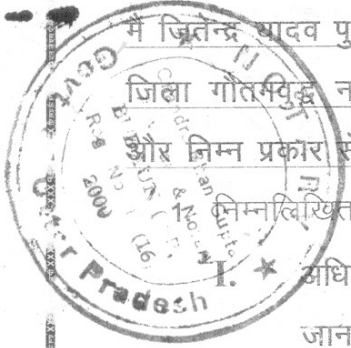 मै जितेन्द्र यादव पु
जिला गौतमबुद्ध न
और निम्न प्रकार से
1. निम्नलिखित
I. अधि
जान
Govt.
Uttar Pradesh
Gupta
& No
Reg No
(16)
2000